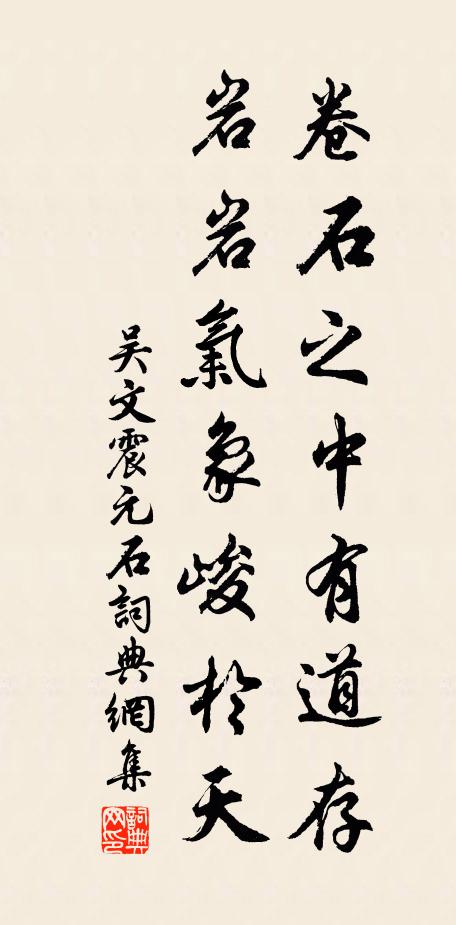 卷石之中有道存
岩岩氣象峻於天
吴文震元石詞典網集
詞典网印